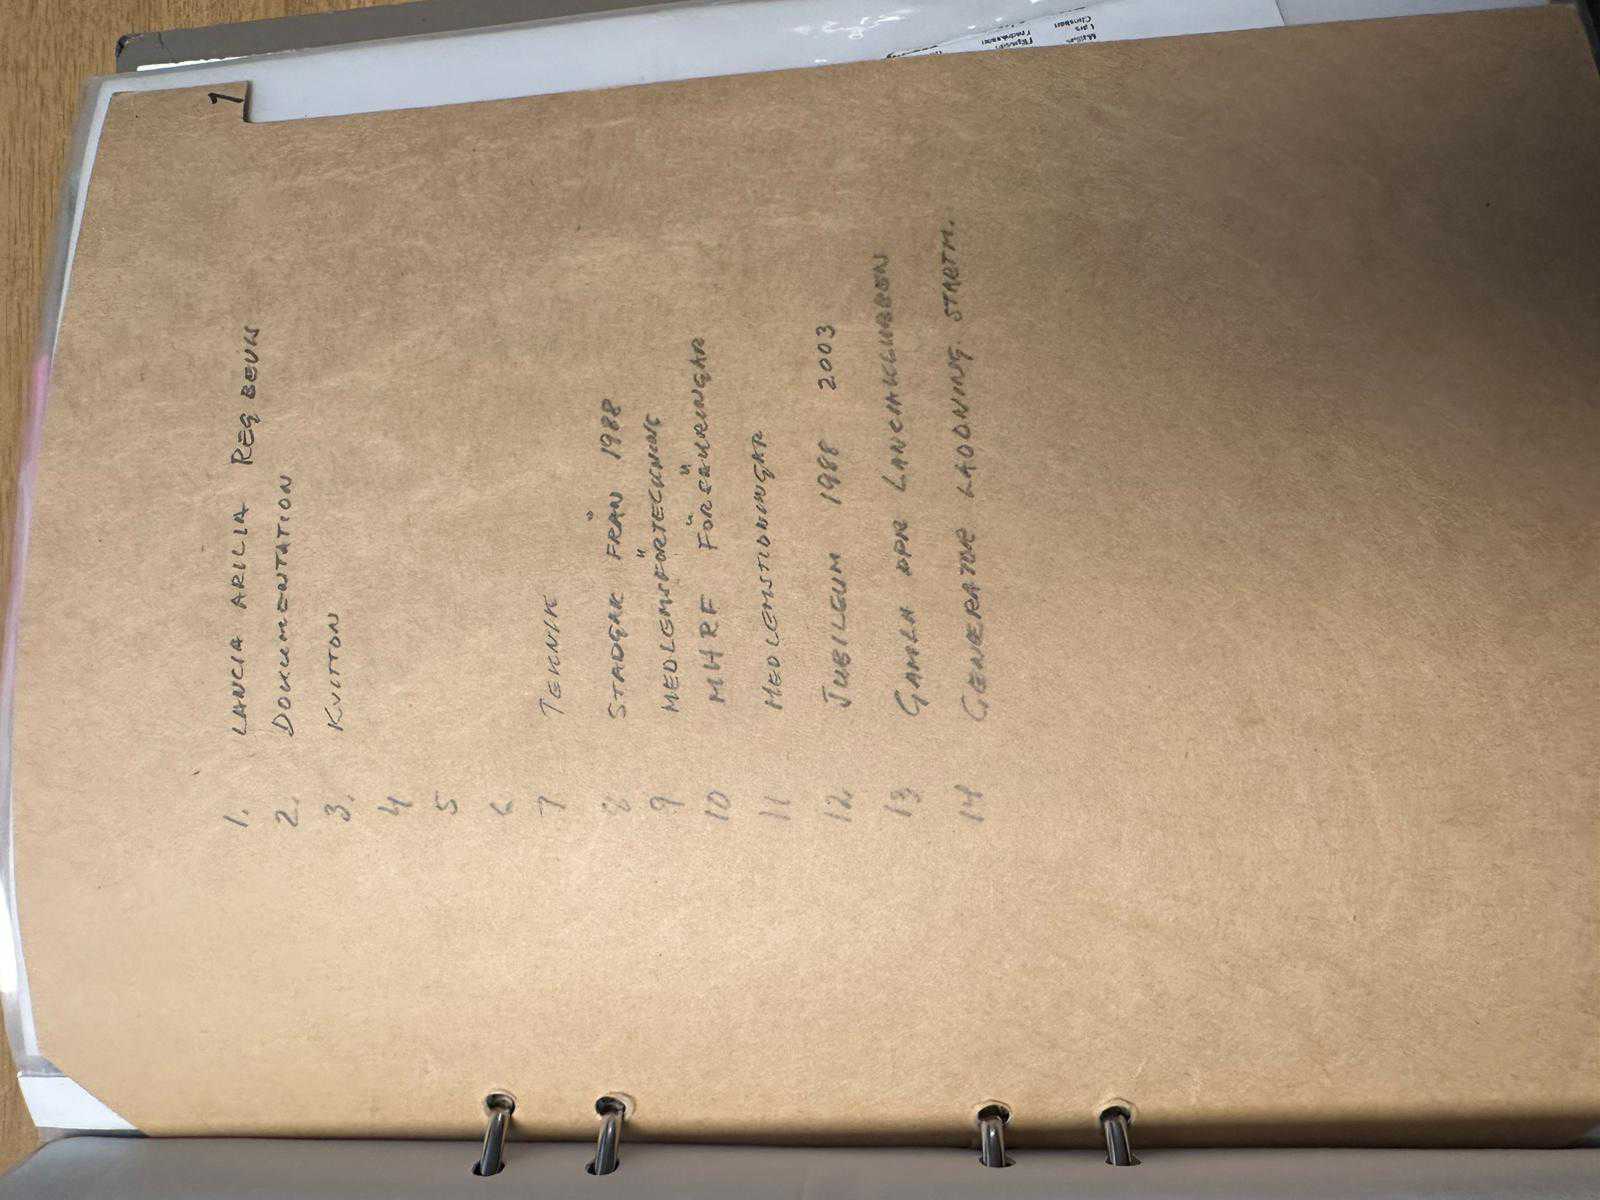 1
1. LANCIA ARILIA REG BEVIS
2. DOKUMENTATION
3. KVITTON
4
5
6
7 TEKNIK
8 STADGAR FRÅN 1988
9 MEDLEMSFÖRTECKNING
10 MHRF FÖRSÄKRINGAR
11 MEDLEMSTIDNINGAR
12 JUBILEUM 1988 2003
13 GAMLA LANCIAKLUBBEN
14 GENERATOR LADDNING. STARTM.
Christian
Lars